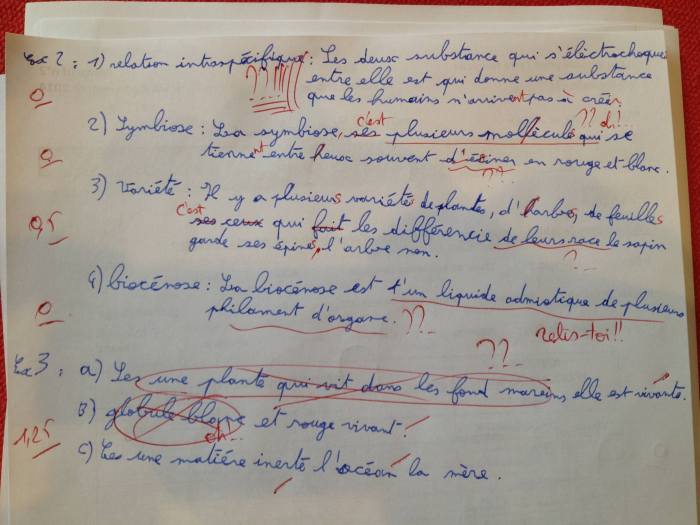 Ex 2 : 1) relation intraspécifique : Les deux substance qui s'éléctrochoque
entre elle est qui donne une substance
que les humains n'arrivent pas à créer.
??
0
c'est ?? oh!...
2) Symbiose : La symbiose, ses plusieurs molécules qui se
tiennent entre heux souvent en rouge et blanc.
??
0
3) Variété : Il y a plusieurs variétés de plantes, d'harbres, de feuilles
c'est
ses ceux qui fait les différencie de leurs race le sapin
garde ses épines, l'arbre non.
?
0,5
4) biocénose : La biocénose est t'un liquide de plusieurs
philament d'organe. ??
0
relis-toi!!
??
Ex 3 : a) Les une plante qui vit dans les fond marens elle est vivante.
B) globule blanc et rouge vivant.
oh...
1,25
C) Les une matiére inerte l'océan la mère.